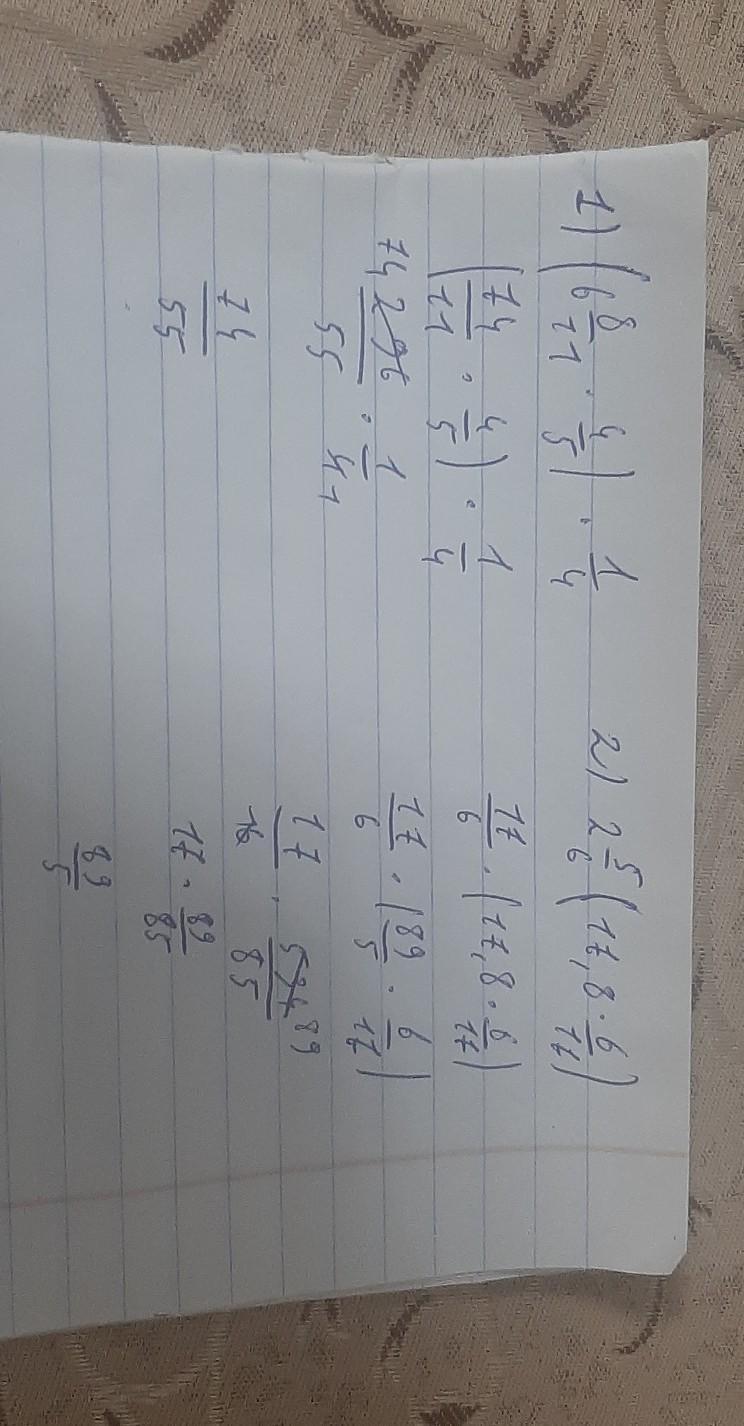 1) (6 8/11 · 4/5) · 1/4
(74/11 · 4/5) · 1/4
74 296/55 · 1/4 1
74/55
2) 2 5/6 (17,8 · 6/17)
17/6 · (17,8 · 6/17)
17/6 · (89/5 · 6/17)
17/16 · 534/85 89
17 · 89/85
89/5